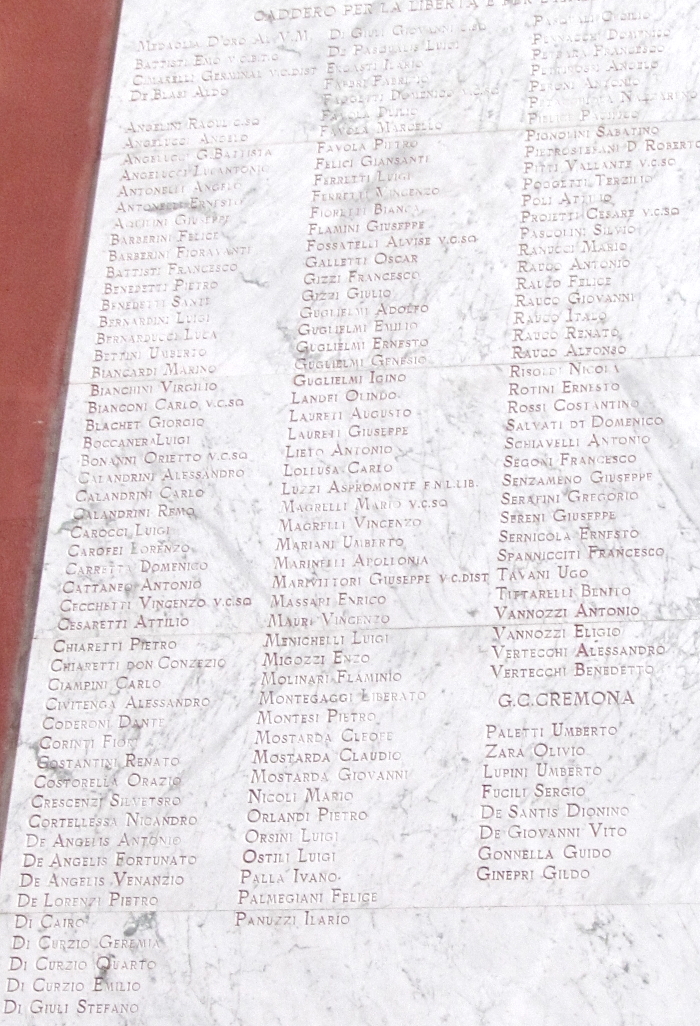 CADDERO PER LA LIBERTÀ E PER
MEDAGLIA D'ORO AL V.M.
BATTISTI EMO V.C.DIT.O
CIMARELLI GERMINAL V.C.DIST
DE BLASI ALDO
ANGELINI RAOUL C.SQ
ANGELUCCI ANGELO
ANGELUCCI G.BATTISTA
ANGELUCCI LUCANTONIO
ANTONELLI ANGELO
ANTONELLI ERNESTO
GIUSEPPE
BARBERINI FELICE
BARBERINI FIORAVANTE
BATTISTI FRANCESCO
BENEDETTI PIETRO
BENEDETTI SANTE
BERNARDINI LUIGI
BERNARDUCCI LUCA
BETTINI UMBERTO
BIANCARDI MARINO
BIANCHINI VIRGILIO
BIANCONI CARLO V.C.SQ
BLACHET GIORGIO
BOCCANERA LUIGI
BONANNI ORIETTO V.C.SQ
CALANDRINI ALESSANDRO
CALANDRINI CARLO
CALANDRINI REMO
CAROCCI LUIGI
CAROFEI LORENZO
CARRETTA DOMENICO
CATTANEO ANTONIO
CECCHETTI VINCENZO V.C.SQ
CESARETTI ATTILIO
CHIARETTI PIETRO
CHIARETTI DON CONZEZIO
CIAMPINI CARLO
CIVITENGA ALESSANDRO
CODERONI DANTE
CORINTI FIORE
COSTANTINI RENATO
COSTORELLA ORAZIO
CRESCENZI SILVETSRO
CORTELLESSA NICANDRO
DE ANGELIS ANTONIO
DE ANGELIS FORTUNATO
DE ANGELIS VENANZIO
DE LORENZI PIETRO
DI CAIRO
DI CURZIO GEREMIA
DI CURZIO QUARTO
DI CURZIO EMILIO
DI GIULI STEFANO
DI GIULI GIOVANNI
DE PASQUALIS LUIGI
ERCASTI ILARIO
FABRI FABRIZIO
DOMENICO V.C.SQ
FAVOLA DUILIO
FAVOLA MARCELLO
FAVOLA PIETRO
FELICI GIANSANTI
FERRETTI LUIGI
FERRETTI VINCENZO
FIORETTI BIANCA
FLAMINI GIUSEPPE
FOSSATELLI ALVISE V.C.SQ
GALLETTI OSCAR
GIZZI FRANCESCO
GIZZI GIULIO
GUGLIELMI ADOLFO
GUGLIELMI EMILIO
GUGLIELMI ERNESTO
GUGLIELMI GENESIO
GUGLIELMI IGINO
LANDFI OLINDO
LAURETI AUGUSTO
LAURETI GIUSEPPE
LIETO ANTONIO
LOLLUSA CARLO
LUZZI ASPROMONTE F.N.L.LIB.
MAGRELLI MARIO V.C.SQ
MAGRELLI VINCENZO
MARIANI UMBERTO
MARINELLI APOLLONIA
MARIVITTORI GIUSEPPE V.C.DIST
MASSARI ENRICO
MAURI VINCENZO
MENICHELLI LUIGI
MIGOZZI ENZO
MOLINARI FLAMINIO
MONTEGAGGI LIBERATO
MONTESI PIETRO
MOSTARDA CLEOFE
MOSTARDA CLAUDIO
MOSTARDA GIOVANNI
NICOLI MARIO
ORLANDI PIETRO
ORSINI LUIGI
OSTILI LUIGI
PALLA IVANO
PALMEGIANI FELICE
PANUZZI ILARIO
PASQUALI
PENNACCHI DOMENICO
FRANCESCO
ANGELO
PERONI ANTONIO
NAZZARENO
PACIFICO
PIGNOLINI SABATINO
PIETROSTEFANI D ROBERTO
PITTI VALLANTE V.C.SQ
POGGETTI TERZILIO
POLI ATTILIO
PROIETTI CESARE V.C.SQ
PASCOLINI SILVIO
RANUCCI MARIO
RAUCO ANTONIO
RAUCO FELICE
RAUCO GIOVANNI
RAUCO ITALO
RAUCO RENATO
RAUCO ALFONSO
RISOLDI NICOLA
ROTINI ERNESTO
ROSSI COSTANTINO
SALVATI DT DOMENICO
SCHIAVELLI ANTONIO
SEGONI FRANCESCO
SENZAMENO GIUSEPPE
SERAFINI GREGORIO
SERENI GIUSEPPE
SERNICOLA ERNESTO
SPANNICCITI FRANCESCO
TAVANI UGO
TITTARELLI BENITO
VANNOZZI ANTONIO
VANNOZZI ELIGIO
VERTECCHI ALESSANDRO
VERTECCHI BENEDETTO
G.C.CREMONA
PALETTI UMBERTO
ZARA OLIVIO
LUPINI UMBERTO
FUCILI SERGIO
DE SANTIS DIONINO
DE GIOVANNI VITO
GONNELLA GUIDO
GINEPRI GILDO